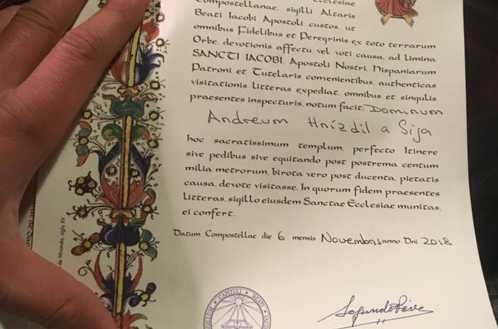 Ecclesiae
Compostellanae, sigilli Altaris
Beati Iacobi Apostoli custos, ut
omnibus Fidelibus et Peregrinis ex toto terrarum
Orbe, devotionis affectu vel voti causa, ad limina
SANCTI IACOBI, Apostoli Nostri, Hispaniarum
Patroni et Tutelaris convenientibus, authenticas
visitationis litteras expediat, omnibus et singulis
praesentes inspecturis, notum facit: Dominum
Andreum Hnízdil a Sija
hoc sacratissimum templum, perfecto Itinere
sive pedibus sive equitando post postrema centum
milia metrorum, birota vero post ducenta, pietatis
causa, devote visitasse. In quorum fidem praesentes
litteras, sigillo eiusdem Sanctae Ecclesiae munitas,
ei confert.
Datum Compostellae die 6 mensis Novembris anno Dni 2018